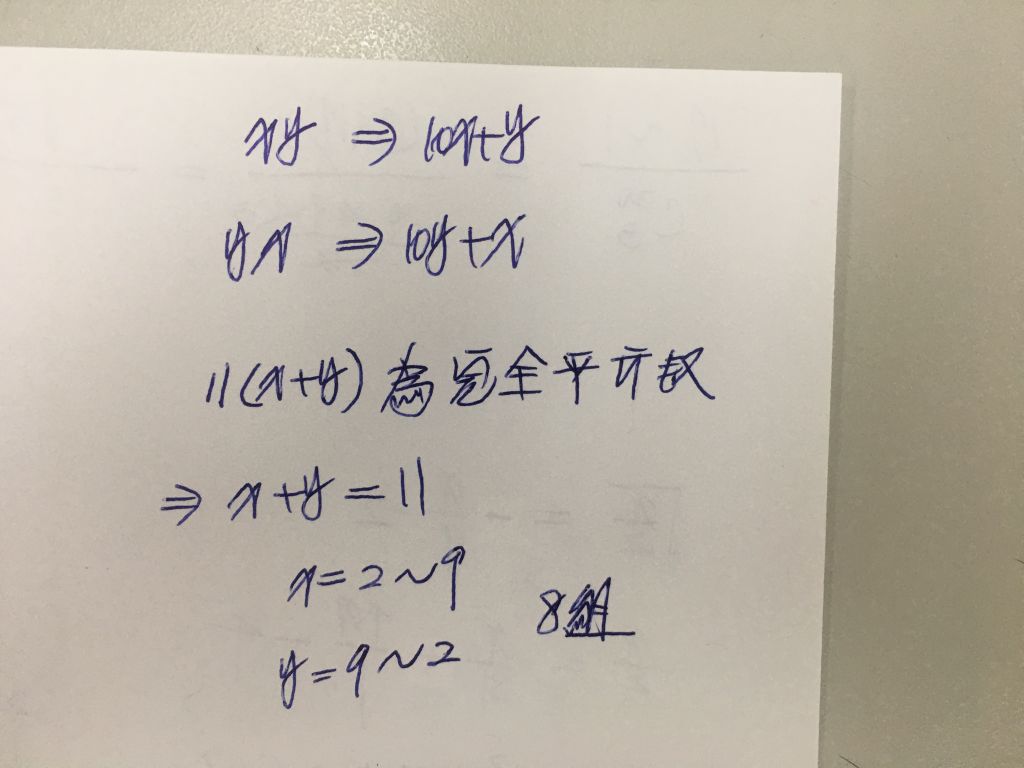 xy ⇒ 10x+y
yx ⇒ 10y+x
11(x+y) 為完全平方數
⇒ x+y=11
x=2~9
8組
y=9~2